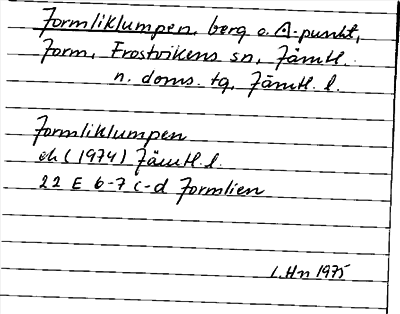 Jormliklumpen, berg o. A-punkt,
Jorm, Frostvikens sn, Jämtl.
n. doms. tg, Jämtl. l.
Jormliklumpen
ek (1974) Jämtl. l.
22 E 6-7 c-d Jormlien
L.Hn 1975